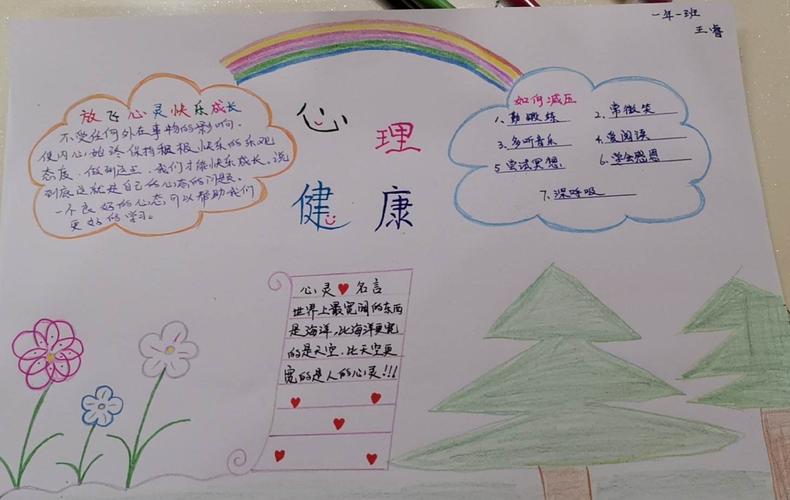 一年一班
王睿
放飞心灵快乐成长
不受任何外在事物的影响.
使内心始终保持积极、快乐的乐观
态度、做到这点,我们才能快乐成长、说
到底这就是自己的心态的问题。
一个良好的心态,可以帮助我们
更好的学习。
心理
健康
如何减压
1、勤锻炼
2、常微笑
3、多听音乐
4、爱阅读
5尝试冥想
6、学会感恩
7、深呼吸
心灵 名言
世界上最宽阔的东西
是海洋,比海洋更宽
的是天空,比天空更
宽的是人的心灵!!!